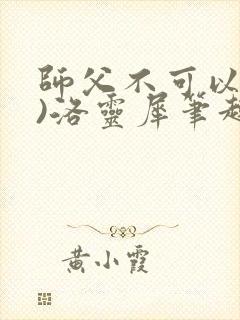 師父不可以
)洛靈犀筆趣
黃小霞